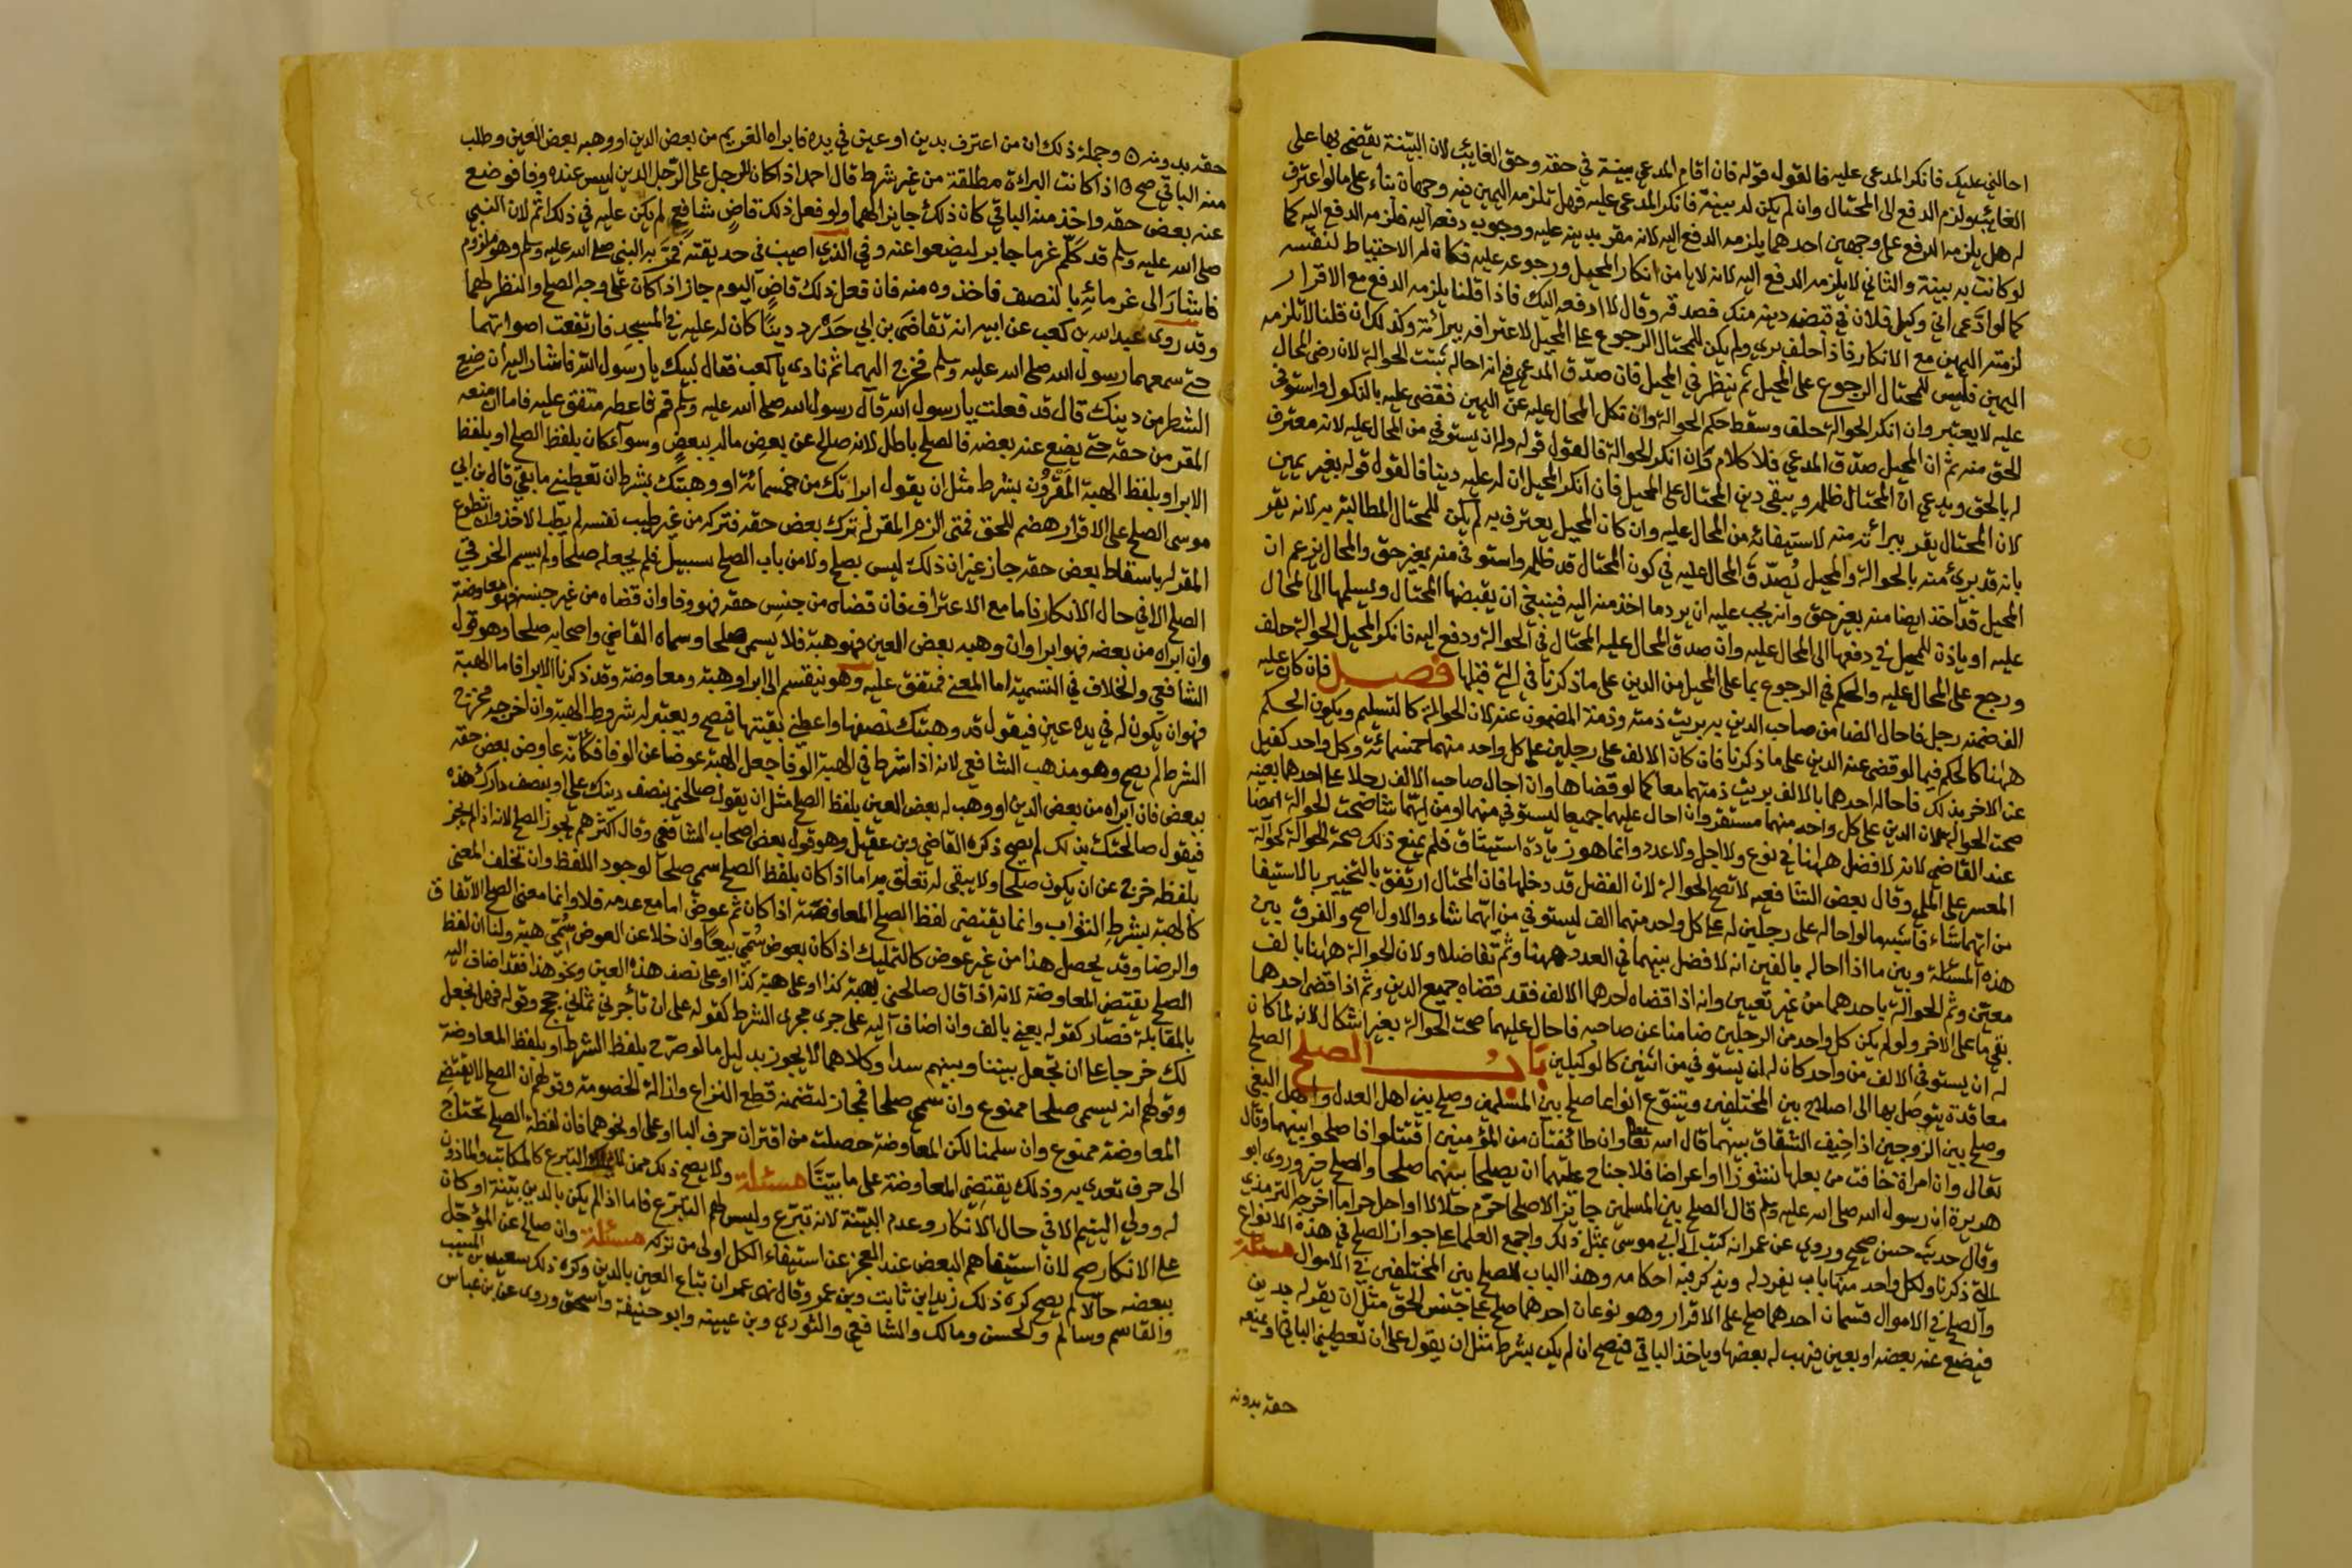 احالني عليك فانكر المدعى عليه فالقول قوله فان اقام المدعي بينة في حقه وحق الغايب لان البينة يقضى بها على
الغايب ولزم الدفع الى المحتال وان لم يكن له بينة فانكر المدعى عليه فهل تلزمه اليمين فيه وجهان بناء على ما لو اعترف
له هل يلزمه الدفع على وجهين احدهما يلزمه الدفع اليه لانه مقر بدينه عليه ووجوب دفعه اليه فلزمه الدفع اليه كما
لو كانت به بينة والثاني لا يلزمه الدفع اليه لانه لا يامن انكار المحيل ورجوعه عليه فكان له الاحتياط لنفسه
كما لو ادعى اني وكيل فلان في قبض دينه منك فصدقه وقال لا ادفعه اليك فاذا قلنا يلزمه الدفع مع الاقرار
لزمته اليمين مع الانكار فاذا حلف بري ولم يكن للمحتال الرجوع على المحيل لاعترافه ببرأته وكذلك ان قلنا لا تلزمه
اليمين فليس للمحتال الرجوع على المحيل ثم ينظر في المحيل فان صدق المدعي في انه احاله ثبتت الحوالة لان رضى المحال
عليه لا يعتبر وان انكر الحوالة حلف وسقط حكم الحوالة وان نكل المحال عليه عن اليمين فقضي عليه بالنكول واستوفى
الحق منه ثم ان المحيل صدق المدعي فلا كلام وان انكر الحوالة فالقول قوله وله ان يستوفي من المحال عليه لانه معترف
له بالحق ويدعي ان المحتال ظلمه ويبقى دين المحتال على المحيل فان انكر المحيل ان له عليه دينا فالقول قوله بغير يمين
لان المحتال يقر ببرأته منه لاستيفائه من المحال عليه وان كان المحيل يعترف به لم يكن للمحتال المطالبة به لانه يقر
بانه قد برئ منه بالحوالة والمحيل يصدق المحال عليه في كون المحتال قد ظلمه واستوفى منه بغير حق والمحال يزعم ان
المحيل قد اخذ ايضا منه بغير حق وانه يجب عليه ان يرد ما اخذ منه اليه فينبغي ان يقبضها المحتال ويسلمها الى المحال
عليه او ياذن للمحيل في دفعها الى المحال عليه وان صدق المحال عليه المحتال في الحوالة ودفع اليه فانكر المحيل الحوالة حلف
ورجع على المحال عليه والحكم في الرجوع بما على المحيل من الدين على ما ذكرنا في التي قبلها فصل فان كان عليه
الف ضمنه رجل فاحال الضامن صاحب الدين به بريت ذمته وذمة المضمون عنه لان الحوالة كالتسليم ويكون الحكم
ههنا كالحكم فيما لو قضى عنه الدين على ما ذكرنا فان كان الالف على رجلين على كل واحد منهما خمسمائة وكل واحد كفيل
عن الاخر بذلك فاحاله احدهما بالالف بريت ذمتهما معا كما لو قضاها وان احال صاحب الالف رجلا على احدهما بعينه
صحت الحوالة لان الدين على كل واحد منهما مستقر وان احال عليهما جميعا ليستوفي منهما او من ايهما شا صحت الحوالة ايضا
عند القاضي لانه لا فضل ههنا في نوع ولا اجل ولا عدد وانما هو زيادة استيثاق فلم يمنع ذلك صحة الحوالة كحوالة
المعسر على الملي وقال بعض الشافعيه لا تصح الحوالة لان الفضل قد دخلها فان المحتال ارتفق بالتخيير بالاستيفا
من ايهما شاء فاشبه ما لو احاله على رجلين له على كل واحد منهما الف ليستوفي من ايهما شاء والاول اصح والفرق بين
هذه المسئلة وبين ما اذا احاله بالفين انه لا فضل بينهما في العدد ههنا وثم تفاضلا ولان الحوالة ههنا بالف
معين وثم الحوالة باحدهما من غير تعيين وانه اذا قضاه احدهما الالف فقد قضاه جميع الدين وثم اذا قضى احدهما
بقي ما على الاخر ولو لم يكن كل واحد من الرجلين ضامنا عن صاحبه فاحال عليهما صحت الحوالة بغير اشكال لانه لما كان
له ان يستوفي الالف من واحد كان له ان يستوفي من اثنين كالوكيلين باب الصلح الصلح
معاقدة يتوصل بها الى اصلاح بين المختلفين ويتنوع انواعا صلح بين المسلمين وصلح بين اهل العدل واهل البغي
وصلح بين الزوجين اذا خيف الشقاق بينهما قال الله تعالى وان طائفتان من المؤمنين اقتتلوا فاصلحوا بينهما وقال
تعالى وان امراة خافت من بعلها نشوزا او اعراضا فلا جناح عليهما ان يصلحا بينهما صلحا والصلح خير وروى ابو
هريرة ان رسول الله صلى الله عليه وسلم قال الصلح بين المسلمين جائز الا صلحا حرم حلالا او احل حراما اخرجه الترمذي
وقال حديث حسن صحيح وروي عن عمر انه كتب الى ابي موسى بمثل ذلك واجمع العلما على جواز الصلح في هذه الانواع
التي ذكرنا ولكل واحد منها باب يفرد له ويذكر فيه احكامه وهذا الباب للصلح بين المختلفين في الاموال مسئلة
والصلح في الاموال قسمان احدهما صلح على الاقرار وهو نوعان احدهما صلح على جنس الحق مثل ان يقر له بدين
فيضع عنه بعضه او بعين فيهب له بعضها وياخذ الباقي فيصح ان لم يكن بشرط مثل ان يقول على ان تعطيني الباقي او يمنعه
حقه بدونه
حقه بدونه ٥ وجملة ذلك ان من اعترف بدين او عين في يده فابراه الغريم من بعض الدين او وهبه بعض العين وطلب
منه الباقي صح ٥ اذا كانت البراءة مطلقة من غير شرط قال احمد اذا كان للرجل على الرجل الدين ليس عنده وفا فوضع
عنه بعض حقه واخذ منه الباقي كان ذلك جايزا لهما ولو فعل ذلك قاض شافع لم يكن عليه في ذلك اثم لان النبي
صلى الله عليه وسلم قد كلم غرما جابر ليضعوا عنه وفي الذي اصيب في حديقته فمر به النبي صلى الله عليه وسلم وهو ملزوم
فاشار الى غرمائه بالنصف فاخذوه منه فان فعل ذلك قاض اليوم جاز اذا كان على وجه الصلح والنظر لهما
وقد روى عبد الله بن كعب عن ابيه انه تقاضى بن ابي حدرد دينا كان له عليه في المسجد فارتفعت اصواتهما
حتى سمعهما رسول الله صلى الله عليه وسلم فخرج اليهما ثم نادى يا كعب فقال لبيك يا رسول الله فاشار اليه ان ضع
الشطر من دينك قال قد فعلت يا رسول الله قال رسول الله صلى الله عليه وسلم قم فاعطه متفق عليه فاما ان منعه
المقر من حقه حتى يضع عنه بعضه فالصلح باطل لانه صالح عن بعض ماله ببعض وسوآء كان بلفظ الصلح او بلفظ
الابرا وبلفظ الهبة المقرون بشرط مثل ان يقول ابراتك من خمسمائة او وهبتك بشرط ان تعطيني ما بقي قال بن ابي
موسى الصلح على الاقرار هضم للحق فمتى الزم المقر له ترك بعض حقه فتركه من غير طيب نفسه لم يطب الاخذ وان تطوع
المقر له باسقاط بعض حقه جاز غير ان ذلك ليس بصلح ولا من باب الصلح بسبيل فلم يجعله صلحا ولم يسم الخرقي
الصلح الا في حال الانكار فاما مع الاعتراف فان قضاه من جنس حقه فهو وفا وان قضاه من غير جنسه فهو معاوضة
وان ابراه من بعضه فهو ابرا وان وهبه بعض العين فهو هبة فلا يسمى صلحا وسماه القاضي واصحابه صلحا وهو قول
الشافعي والخلاف في التسمية اما المعنى فمتفق عليه وهو ينقسم الى ابرا وهبة ومعاوضة وقد ذكرنا الابرا فاما الهبة
فهو ان يكون له في يده عين فيقول قد وهبتك نصفها واعطني بقيتها فيصح ويعتبر له شروط الهبة وان اخرجه مخرج
الشرط لم يصح وهو مذهب الشافعي لانه اذا شرط في الهبة الوفا جعل الهبة عوضا عن الوفا فكأنه عاوض بعض حقه
ببعض فان ابراه من بعض الدين او وهب له بعض العين بلفظ الصلح مثل ان يقول صالحني بنصف دينك علي او بنصف دارك هذه
فيقول صالحتك بذلك لم يصح ذكره القاضي وبن عقيل وهو قول بعض اصحاب الشافعي وقال اكثرهم يجوز الصلح لانه اذا لم يجز
بلفظه خرج عن ان يكون صلحا ولا يبقى له تعلق به اما اذا كان بلفظ الصلح سمي صلحا لوجود اللفظ وان تخلف المعنى
كالهبة بشرط الثواب وانما يقتضي لفظ الصلح المعاوضة اذا كان ثم عوض اما مع عدمه فلا وانما معنى الصلح الاتفاق
والرضا وقد يحصل هذا من غير عوض كالتمليك اذا كان بعوض سمي بيعا وان خلا عن العوض سمي هبة ولنا ان لفظ
الصلح يقتضي المعاوضة لانه اذا قال صالحني بهبة كذا او على هبة كذا او على نصف هذه العين ونحو هذا فقد اضاف اليه
بالمقابلة فصار كقوله بعني بالف وان اضاف اليه على جرى مجرى الشرط كقوله على ان تأجرني ثماني حجج وقوله فهل نجعل
لك خرجا على ان تجعل بيننا وبينهم سدا وكلاهما لا يجوز بدليل ما لو صرح بلفظ الشرط او بلفظ المعاوضة
وقولهم انه يسمى صلحا ممنوع وان سمي صلحا فمجاز لتضمنه قطع النزاع وازالة الخصومة وقولهم ان الصلح لا يقتضي
المعاوضة ممنوع وان سلمنا لكن المعاوضة حصلت من اقتران حرف البا او على او نحوهما فان لفظة الصلح تحتاج
الى حرف تعدى به وذلك يقتضي المعاوضة على ما بينا مسئلة ولا يصح ذلك ممن لا يملك التبرع كالمكاتب والماذون
له وولي اليتيم الا في حال الانكار وعدم البينة لانه تبرع وليس لهم التبرع فاما اذا لم يكن بالدين بينة او كان
على الانكار صح لان استيفاهم البعض عند العجز عن استيفاء الكل اولى من تركه مسئلة وان صالح عن المؤجل
ببعضه حالا لم يصح كره ذلك زيد بن ثابت وبن عمر وقال نهى عمر ان تباع العين بالدين وكره ذلك سعيد بن المسيب
والقاسم وسالم والحسن ومالك والشافعي والثوري وبن عيينة وابو حنيفة واسحق وروي عن بن عباس